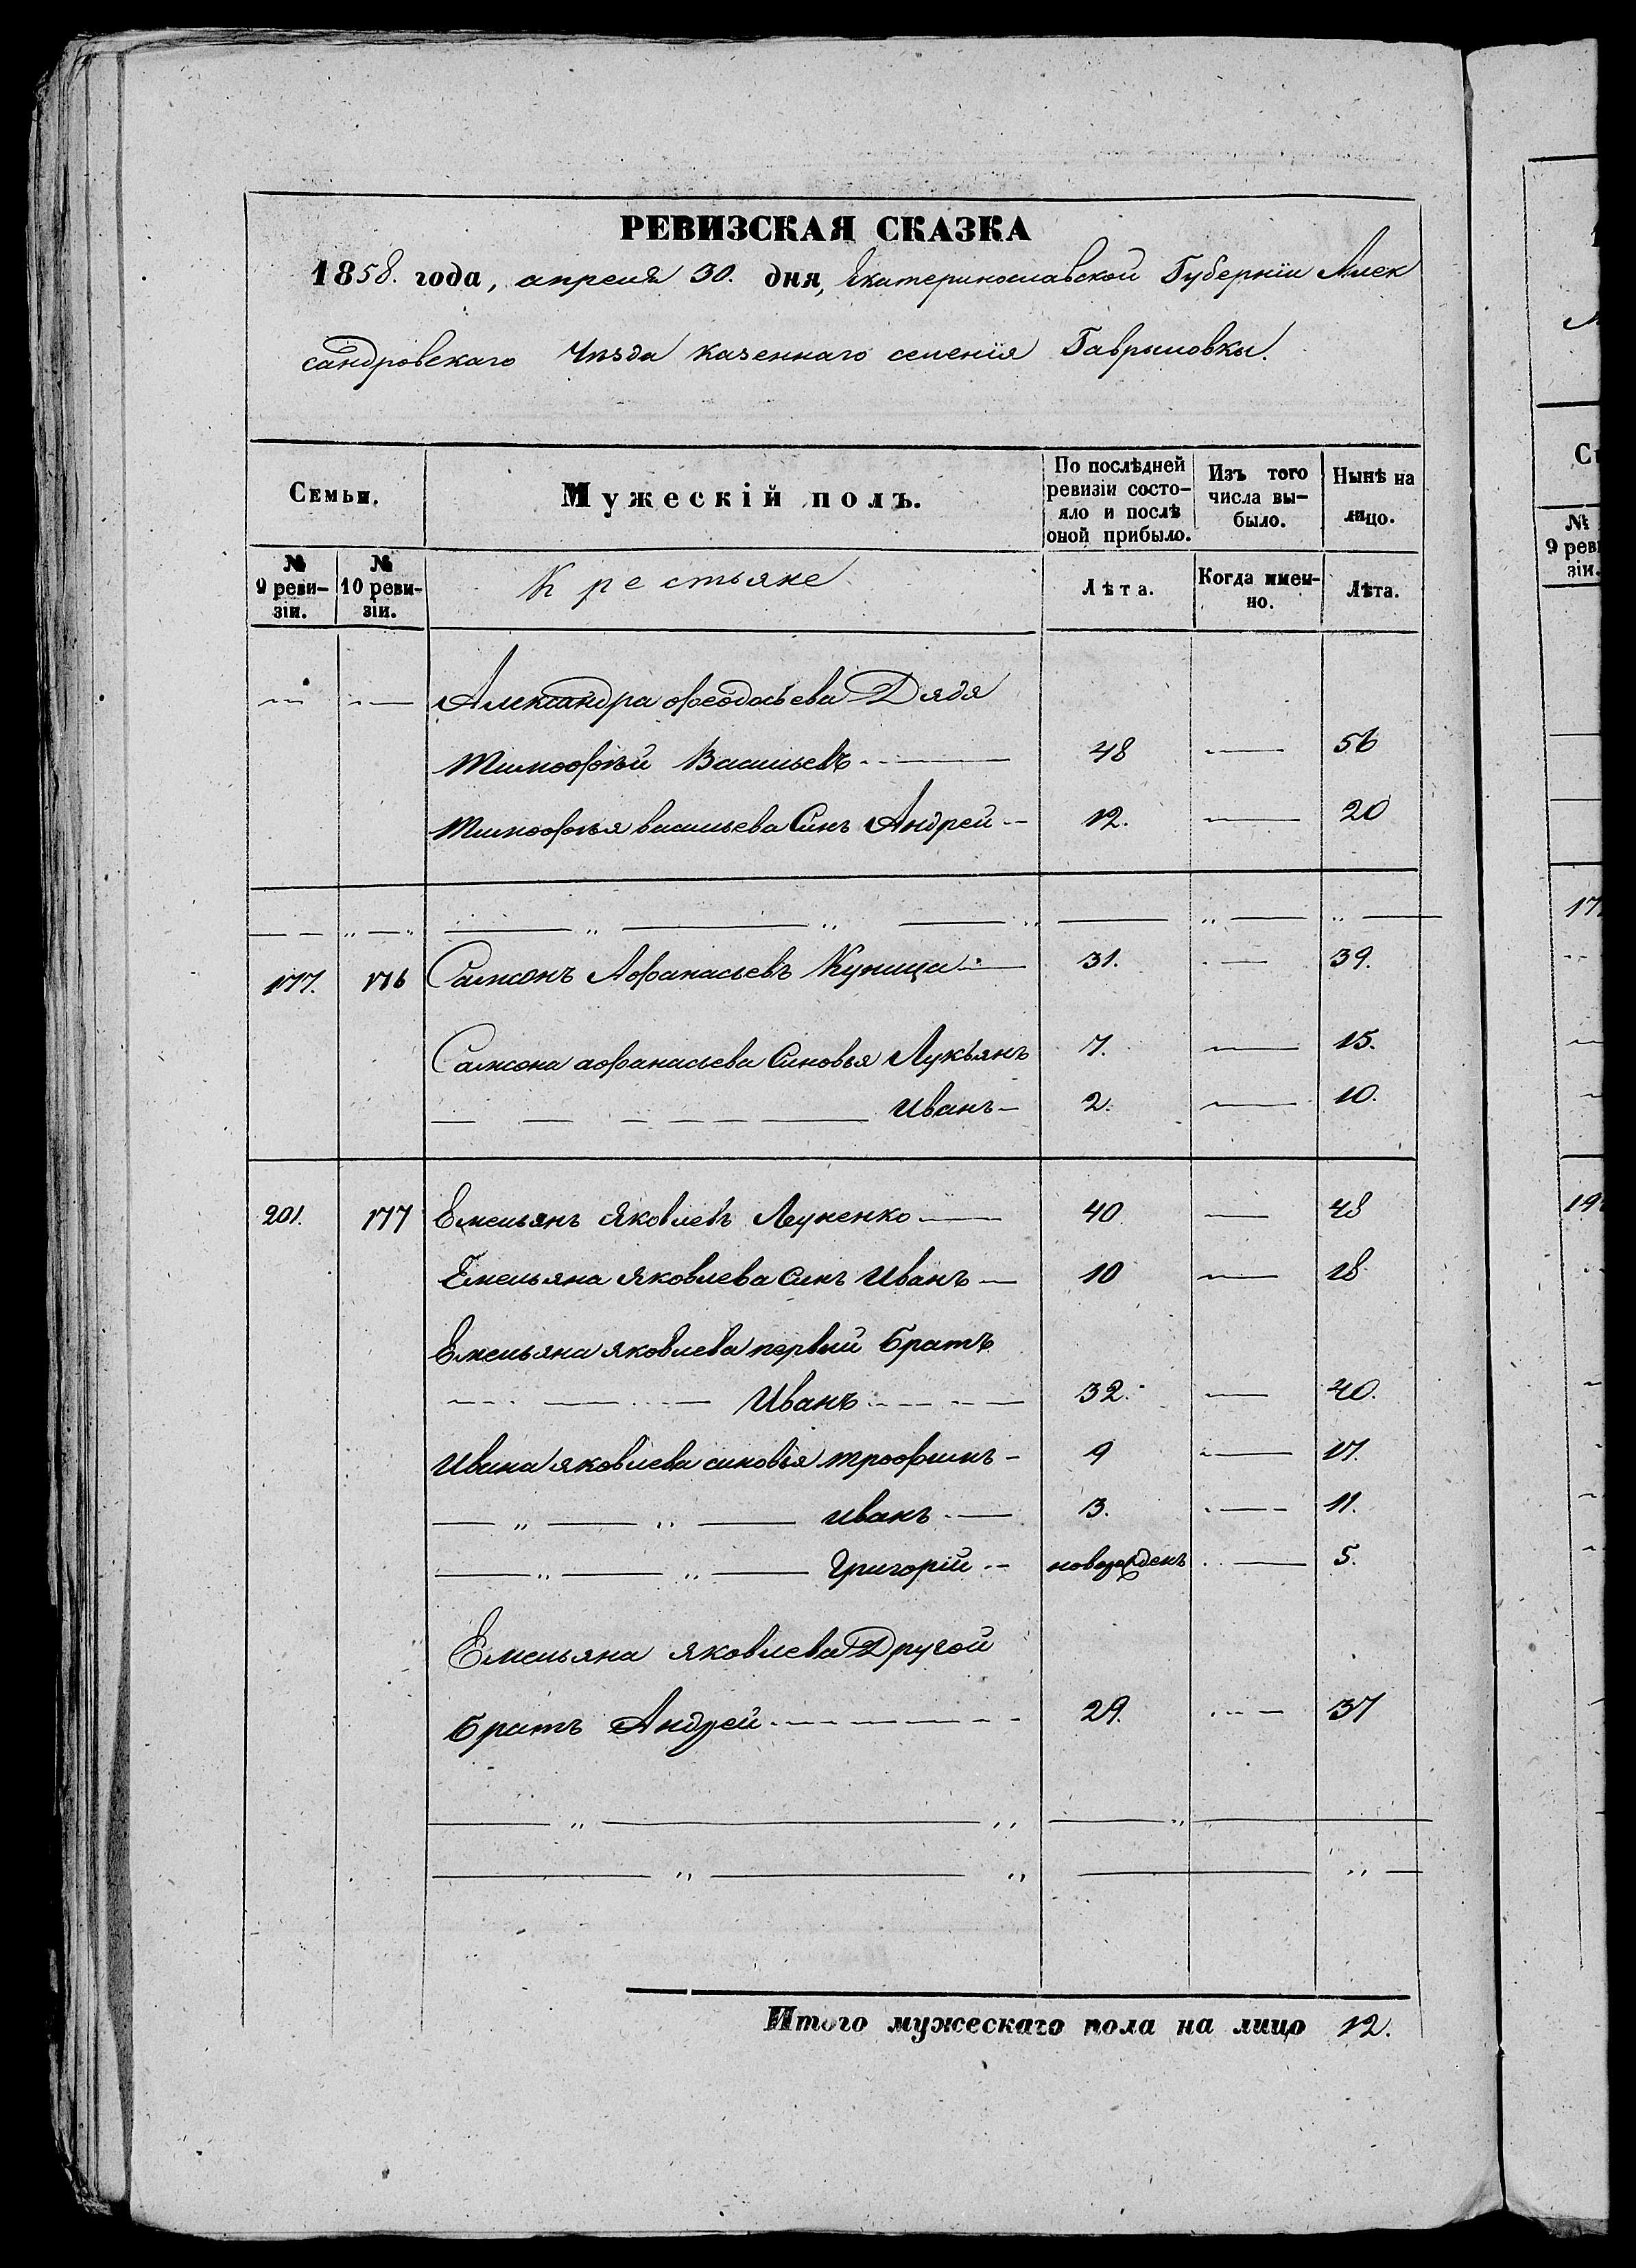 РЕВИЗСКАЯ СКАЗКА
1858. года, апреля 30. дня, Екатеринославской Губерніи Алек
сандровскаго Уѣзда казеннаго селенія Гаврыловкы.
Семьи. Мужескій полъ. По послѣдней ревизіи состо- яло и послѣ оной прибыло. Изъ того числа вы- было. Нынѣ на лицо.
№ 9 реви- зіи. № 10 реви- зіи. Крестьяне Лѣта. Когда имен- но. Лѣта.
Александра Феодосьева Дядя
Тимофѣй Васильевъ 48 56
Тимофѣя васильева Синъ Андрей 12. 20
177. 176 Самсонъ Афанасьевъ Куница 31. 39.
Самсона афанасьева Синовья Лукьянъ 7. 15.
Иванъ 2. 10.
201. 177 Емельянъ Яковлевъ Луненко 40 48
Емельяна Яковлева Синъ Иванъ 10 18
Емельяна яковлева первый Братъ
Иванъ 32. 40.
Ивана яковлева синовья трофимъ 9 17.
иванъ 3. 11.
Григорій новорожденъ 5.
Емельяна яковлева Другой
Братъ Андрей 29. 37
Итого мужескаго пола на лицо 12.
№
9 рев
зіи.